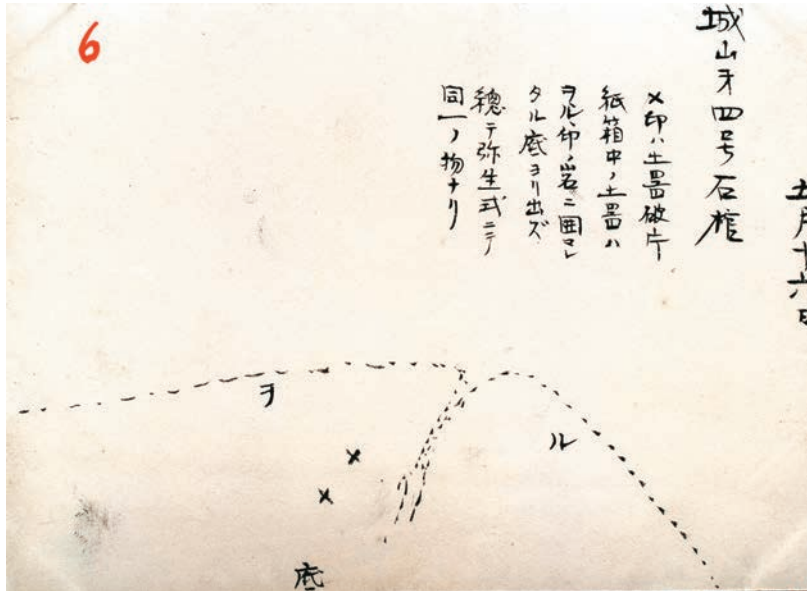 6
十一月十六日
城山才四号石棺
×印ハ土器破片
紙箱中ノ土器ハ
ヲル印ノ岩ニ囲マレ
タル底ヨリ出ズ
總テ弥生式ニテ
同一ノ物ナリ
ヲ
ル
×
×
底